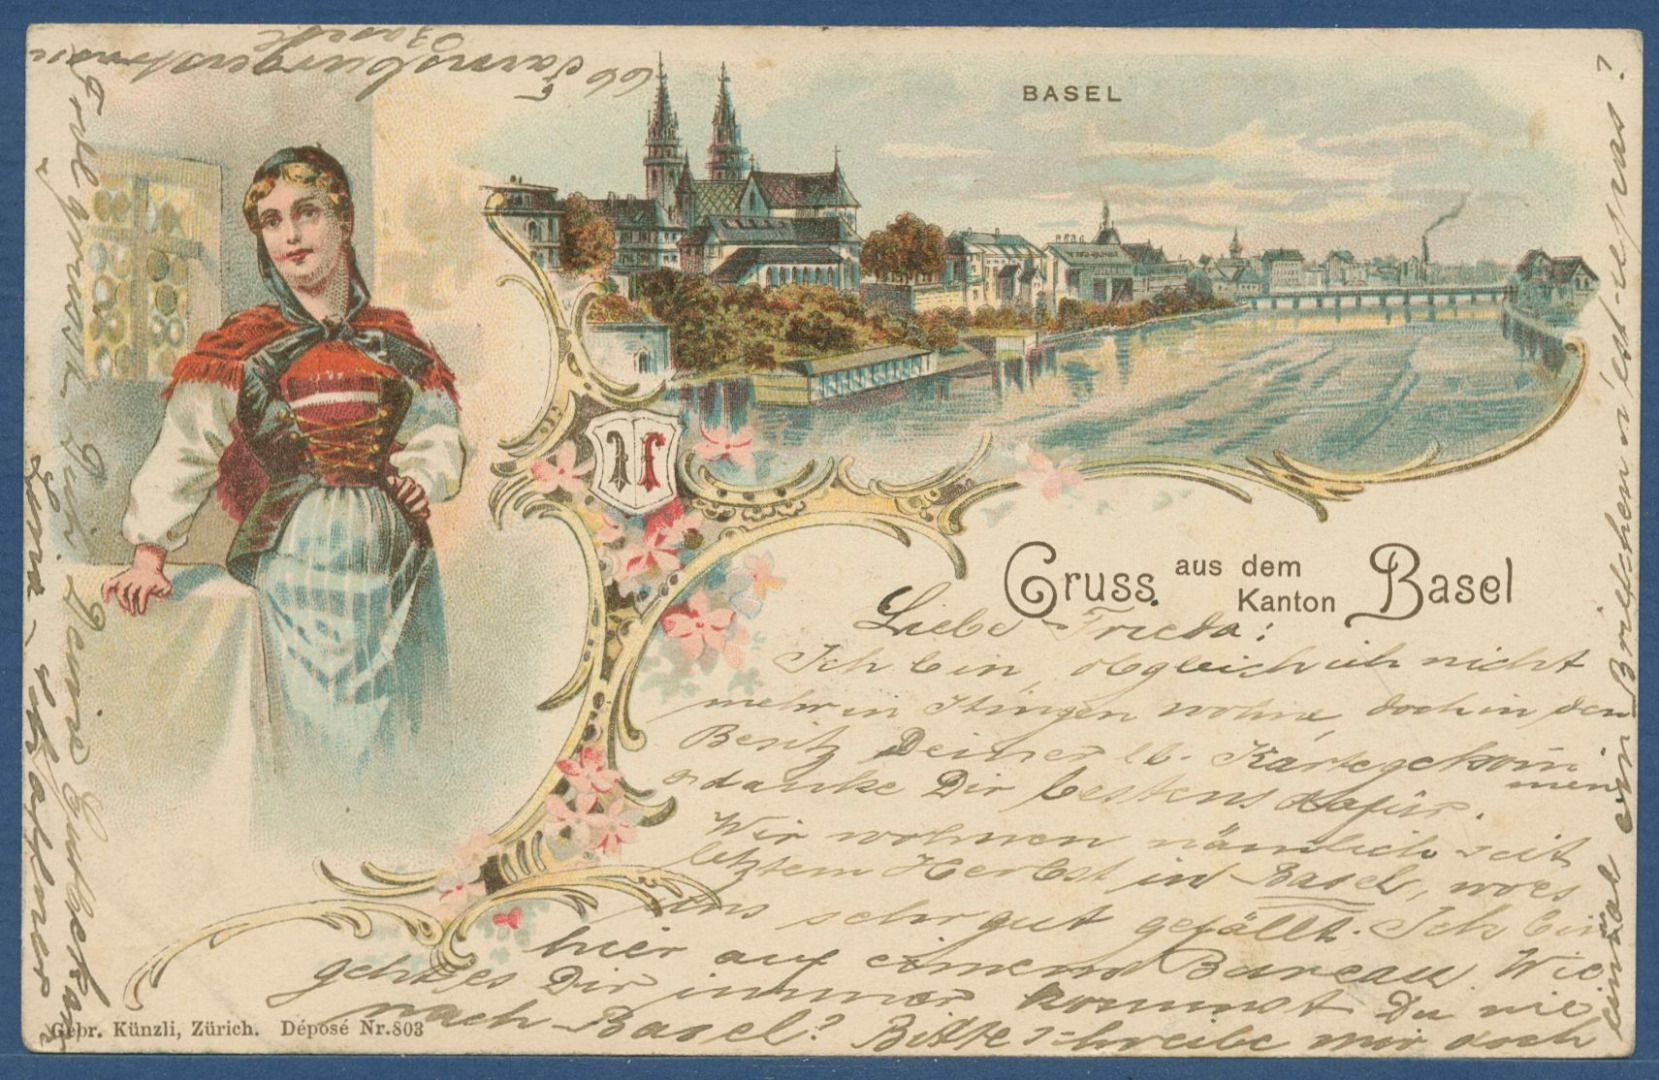 BASEL
Gruss aus dem Kanton Basel
Liebe Frieda!
Ich bin, obgleich ich nicht
mehr in Itingen wohne, doch in den
Besitz Deiner lb. Karte gekom
men
& danke Dir bestens dafür.
Wir wohnen nämlich seit
letztem Herbst in Basel, wo es
uns sehr gut gefällt. Ich bin
hier auf einem Bureau. Wie
geht es Dir immer kommst Du nie
nach Basel? Bitte schreibe mir doch
einmal ein Briefchen n'est-ce pas?
66 Farnsburgerstrasse
Basel
Es grüsst Dich Deine
Gebr. Künzli, Zürich. Déposé Nr. 803